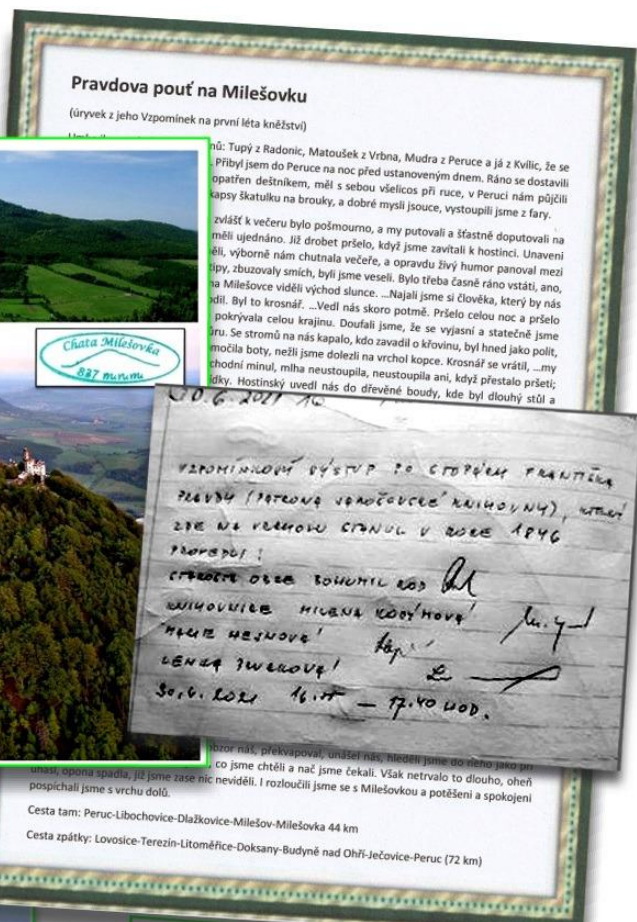 Pravdova pouť na Milešovku
(úryvek z jeho Vzpomínek na první léta kněžství)
nů: Tupý z Radonic, Matoušek z Vrbna, Mudra z Peruce a já z Kvílic, že se
. Přibyl jsem do Peruce na noc před ustanoveným dnem. Ráno se dostavili
opatřen deštníkem, měl s sebou všelicos při ruce, v Peruci nám půjčili
kapsy škatulku na brouky, a dobré mysli jsouce, vystoupili jsme z fary.
zvlášť k večeru bylo pošmourno, a my putovali a šťastně doputovali na
měli ujednáno. Již drobet pršelo, když jsme zavítali k hostinci. Unaveni
ěli, výborně nám chutnala večeře, a opravdu živý humor panoval mezi
tipy, zbuzovaly smích, byli jsme veseli. Bylo třeba časně ráno vstáti, ano,
na Milešovce viděli východ slunce. ...Najali jsme si člověka, který by nás
odil. Byl to krosnář. ...Vedl nás skoro potmě. Pršelo celou noc a pršelo
pokrývala celou krajinu. Doufali jsme, že se vyjasní a statečně jsme
ůru. Se stromů na nás kapalo, kdo zavadil o křovinu, byl hned jako polit,
močila boty, nežli jsme dolezli na vrchol kopce. Krosnář se vrátil, ...my
chodní minul, mlha neustoupila, neustoupila ani, když přestalo pršeti;
ídky. Hostinský uvedl nás do dřevěné boudy, kde byl dlouhý stůl a
Chata Milešovka
837 m.n.m.
VZPOMÍNKOVÝ VÝSTUP PO STOPÁCH FRANTIŠKA
PRAVDY (PATRONA JAROŠOVSKÉ KNIHOVNY), KTERÝ
ZDE NA VRCHOLU STANUL V ROCE 1846
PROVEDLI:
STAROSTA OBCE BOHUMIL ROD
KNIHOVNICE MILENA KODÝMOVÁ
MARIE HEJNOVÁ
LENKA
30.6.2021 — 17.40 HOD.
obzor náš, překvapoval, unášel nás, hleděli jsme do něho jako při
co jsme chtěli a nač jsme čekali. Však netrvalo to dlouho, oheň
uhasl, opona spadla, již jsme zase nic neviděli. I rozloučili jsme se s Milešovkou a potěšeni a spokojeni
pospíchali jsme s vrchu dolů.
Cesta tam: Peruc-Libochovice-Dlažkovice-Milešov-Milešovka 44 km
Cesta zpátky: Lovosice-Terezín-Litoměřice-Doksany-Budyně nad Ohří-Ječovice-Peruc (72 km)